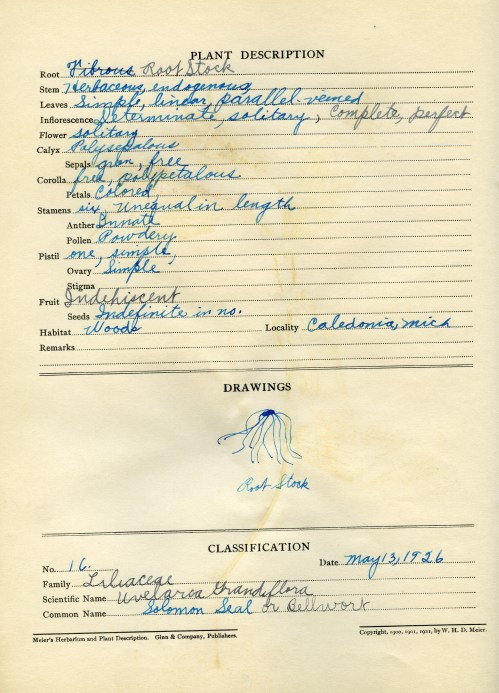 PLANT DESCRIPTION
Root Fibrous Root Stock
Stem Herbaceous, endogenous
Leaves Simple, linear, parallel-veined
Inflorescence Determinate, solitary, Complete, perfect
Flower solitary
Calyx Polysepalous
Sepals gren, free
Corolla free, polypetalous
Petals Colored
Stamens six, Unequal in length
Anther Innate
Pollen Powdery
Pistil one, simple,
Ovary Simple
Stigma
Fruit Indehiscent
Seeds Indefinite in no.
Habitat Woods Locality Caledonia, Mich
Remarks
DRAWINGS
Root Stock
CLASSIFICATION
No. 16. Date May 13, 1926
Family Liliaceae
Scientific Name Uvelarea Grandiflora
Common Name Solomon Seal or Bellwort
Meier's Herbarium and Plant Description. Ginn & Company, Publishers. Copyright, 1900, 1901, 1921, by W. H. D. Meier.